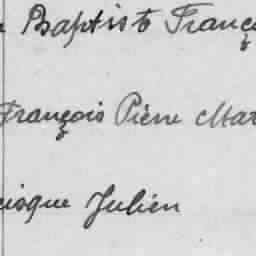 Baptiste Franç
François Pierre Mar
cisque Julien